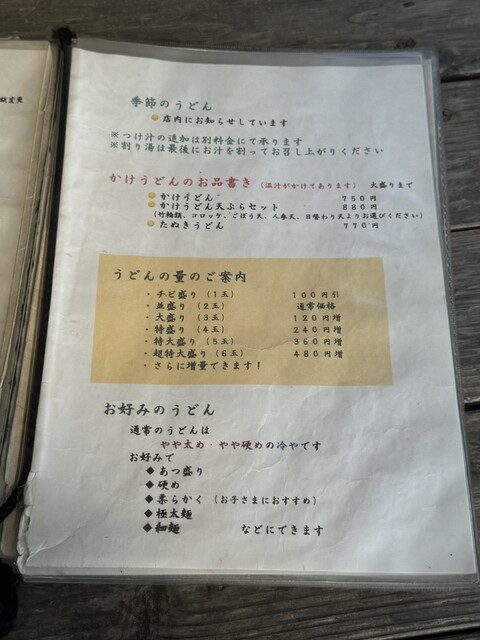 季節のうどん
店内にお知らせしています
※つけ汁の追加は別料金にて承ります
※割り湯は最後にお汁を割ってお召し上がりください
かけうどんのお品書き(温汁がかけてあります) 大盛りまで
かけうどん 750円
かけうどん天ぷらセット 880円
(竹輪類、コロッケ、ごぼう天、人参天、日替わり天よりお選びください)
たぬきうどん 770円
うどんの量のご案内
・チビ盛り(1玉) 100円引
・並盛り(2玉) 通常価格
・大盛り(3玉) 120円増
・特盛り(4玉) 240円増
・特大盛り(5玉) 360円増
・超特大盛り(6玉) 480円増
・さらに増量できます!
お好みのうどん
通常のうどんは
やや太め・やや硬めの冷やです
お好みで
◆あつ盛り
◆硬め
◆柔らかく(お子さまにおすすめ)
◆極太麺
◆細麺 などにできます